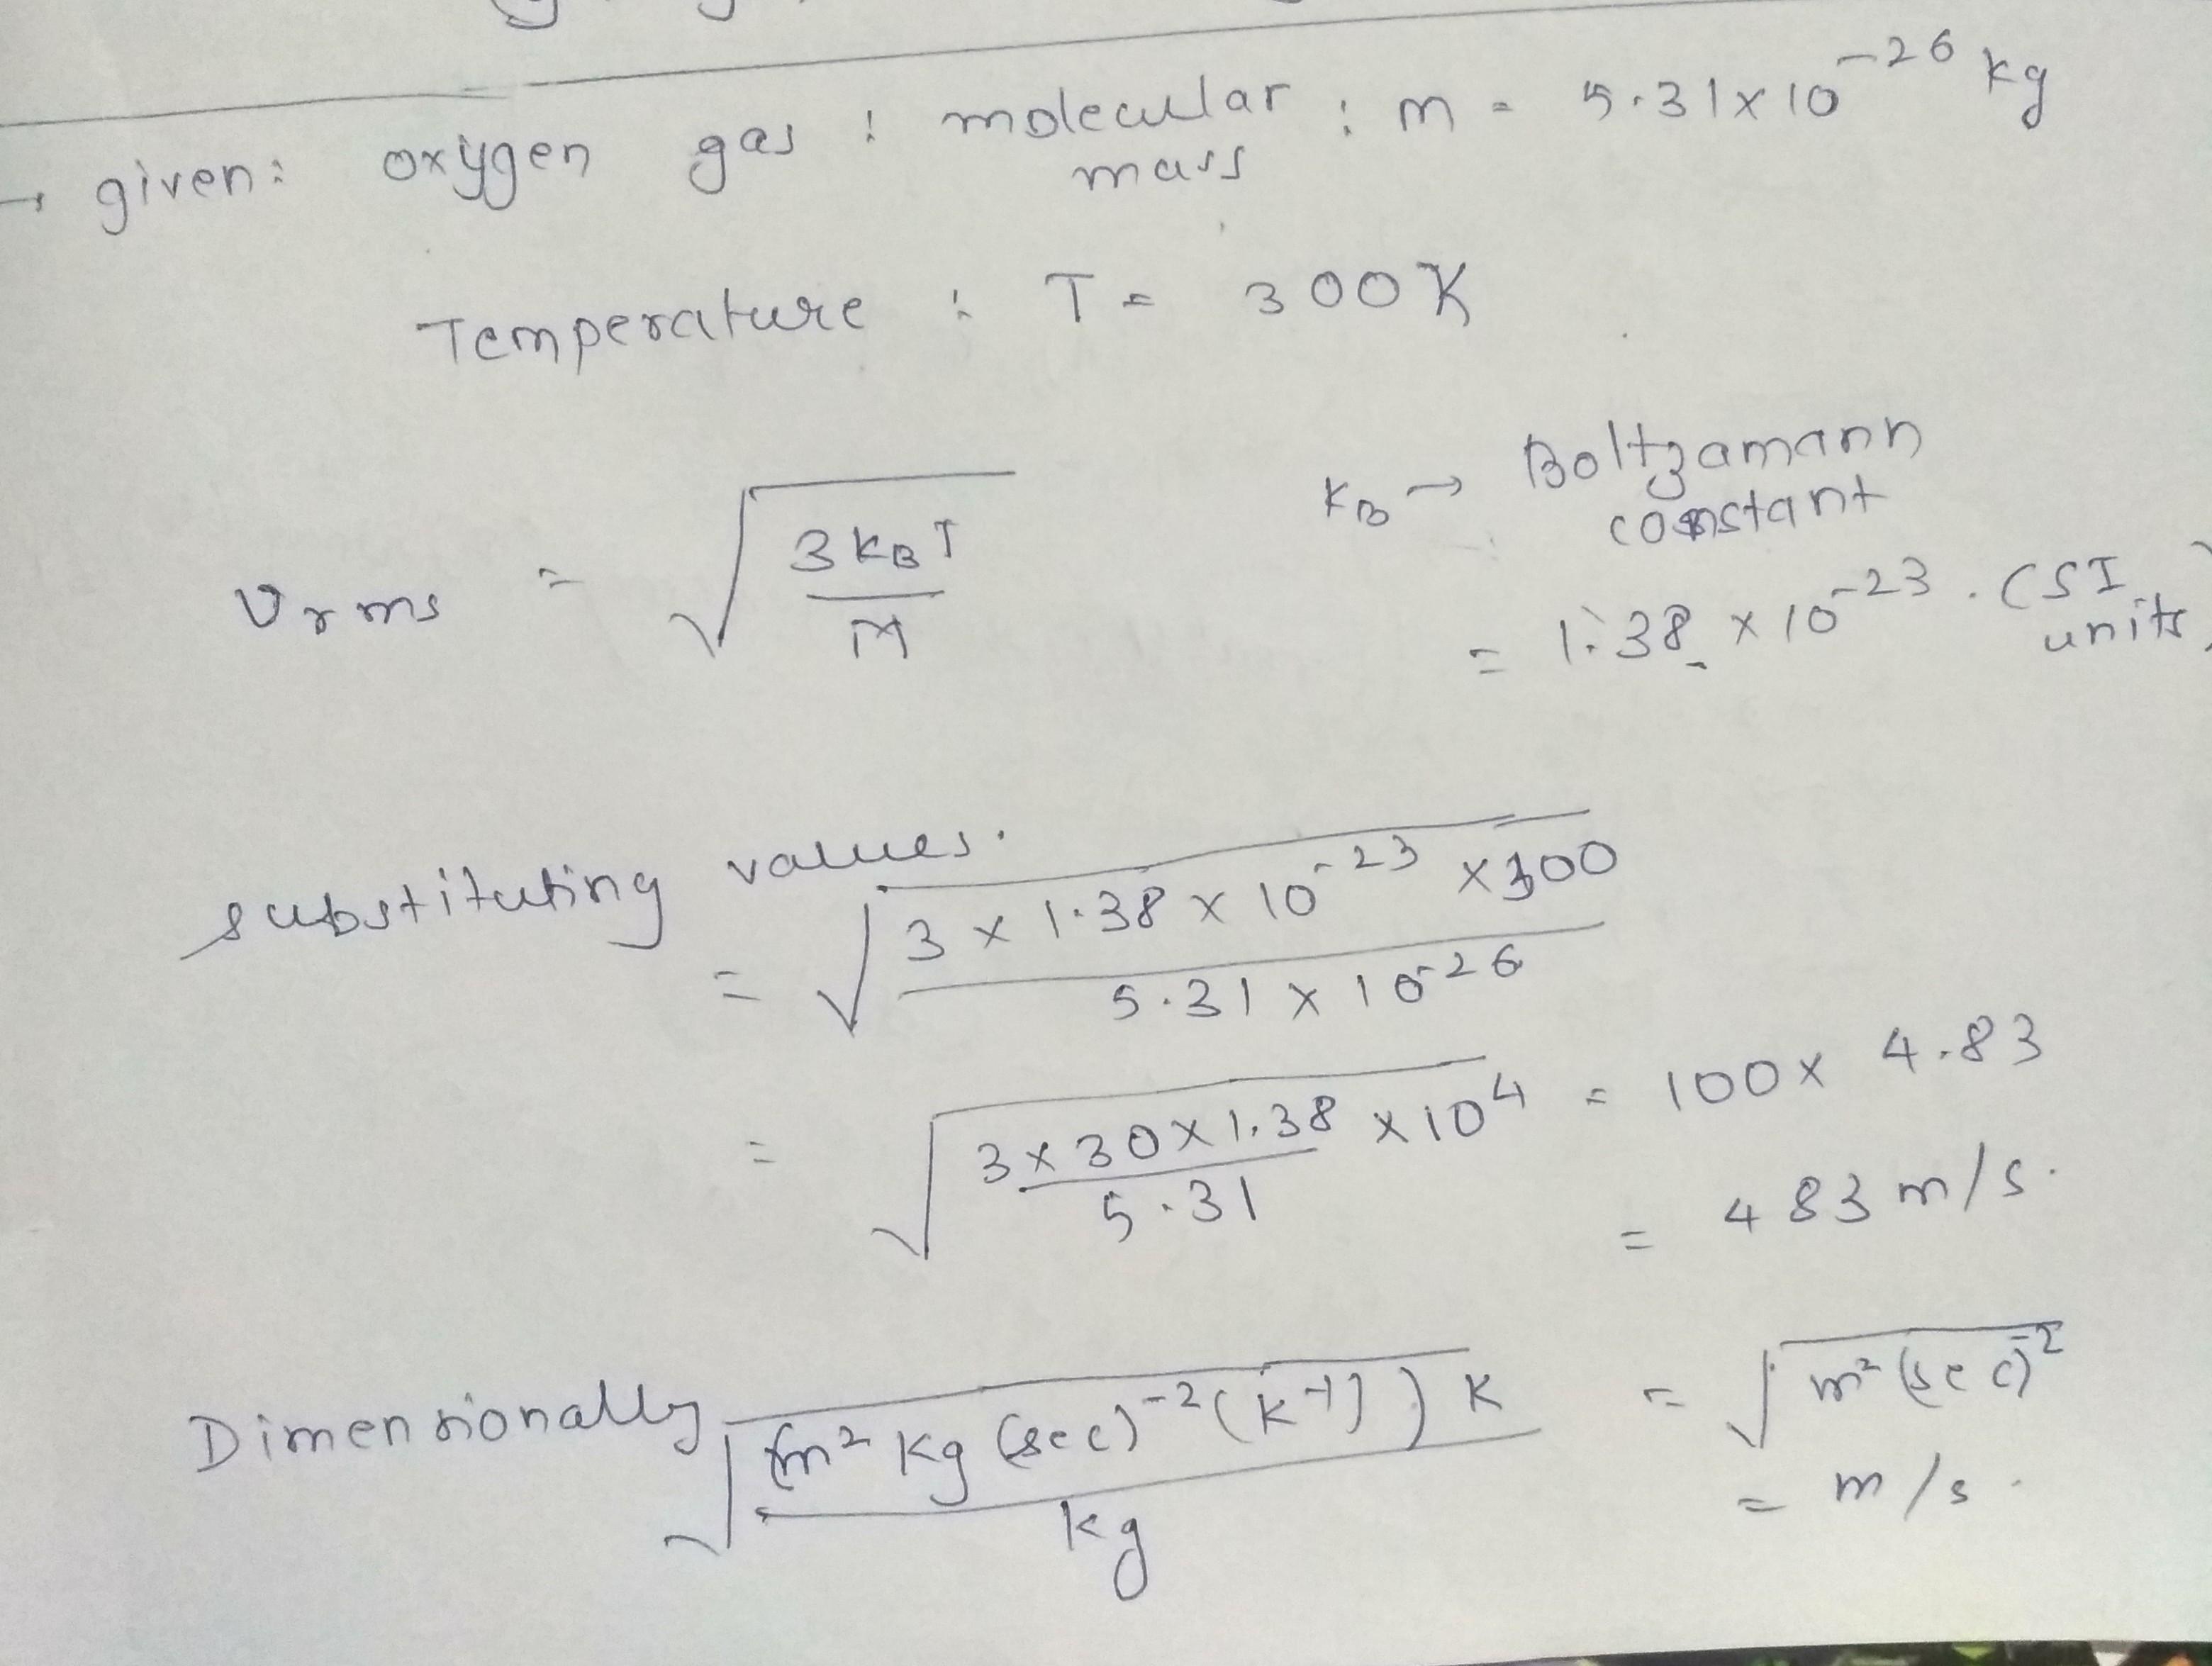 → given: oxygen gas : molecular mass : m = 5.31 x 10^-26 kg
Temperature : T = 300K
vrms = √(3 KB T / M)
KB → Boltzamann constant
= 1.38 x 10^-23 . (SI units)
substituting values.
= √(3 x 1.38 x 10^-23 x 300 / 5.31 x 10^-26)
= √(3 x 30 x 1.38 / 5.31 x 10^4) = 100 x 4.83
= 483 m/s.
Dimensionally √((m² kg (sec)^-2 (K^-1)) K / kg) = √(m² (sec)^-2)
= m/s.